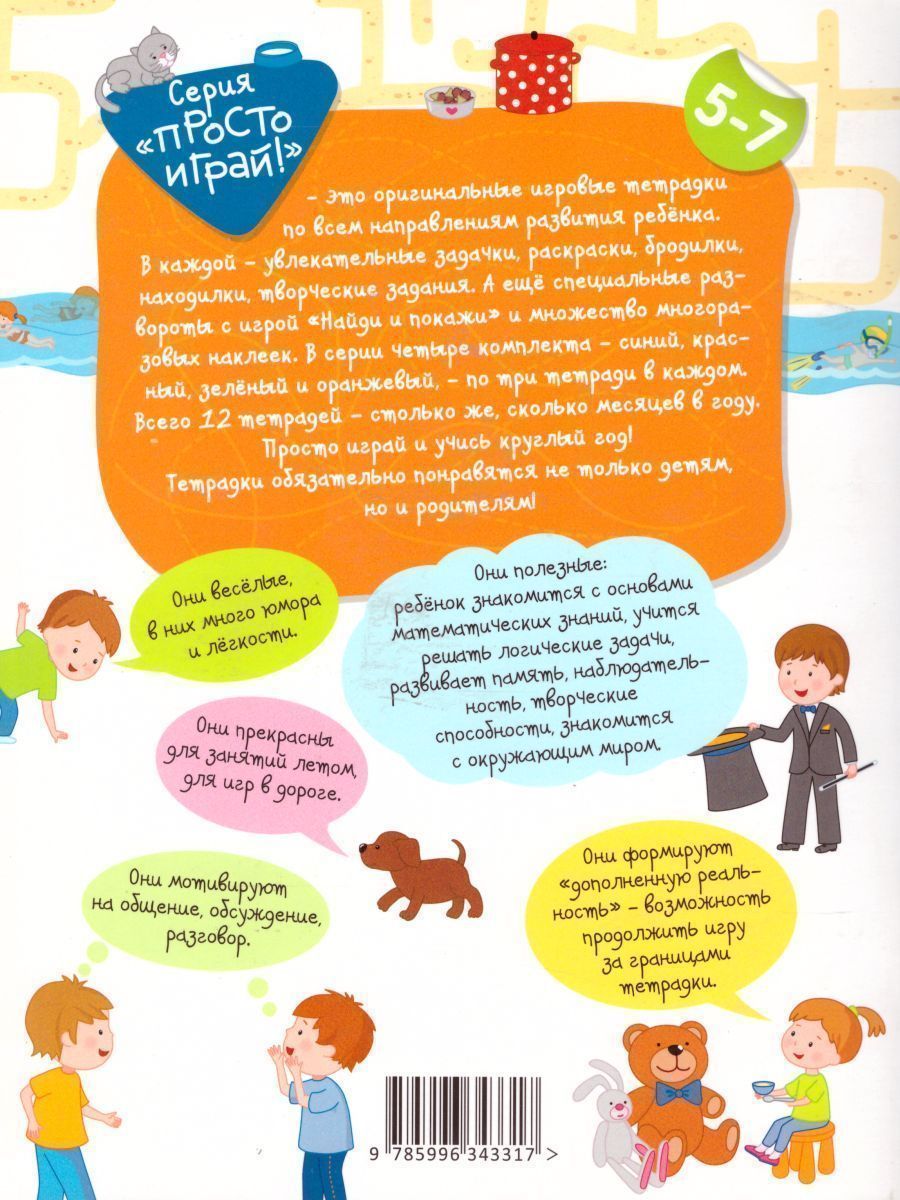 Серия
«ПРоСТо
иГРай!»
5-7
- это оригинальные игровые тетрадки
по всем направлениям развития ребёнка.
В каждой – увлекательные задачки, раскраски, бродилки,
находилки, творческие задания. А ещё специальные раз-
вороты с игрой «Найди и покажи» и множество многора-
зовых наклеек. В серии четыре комплекта – синий, крас-
ный, зелёный и оранжевый, – по три тетради в каждом.
Всего 12 тетрадей – столько же, сколько месяцев в году.
Просто играй и учись круглый год!
Тетрадки обязательно понравятся не только детям,
но и родителям!
Они весёлые,
в них много юмора
и лёгкости.
Они полезные:
ребёнок знакомится с основами
математических знаний, учится
решать логические задачи,
развивает память, наблюдатель-
ность, творческие
способности, знакомится
с окружающим миром.
Они прекрасны
для занятий летом,
для игр в дороге.
Они мотивируют
на общение, обсуждение,
разговор.
Они формируют
«дополненную реаль-
ность» – возможность
продолжить игру
за границами
тетрадки.
9 785996 343317 >